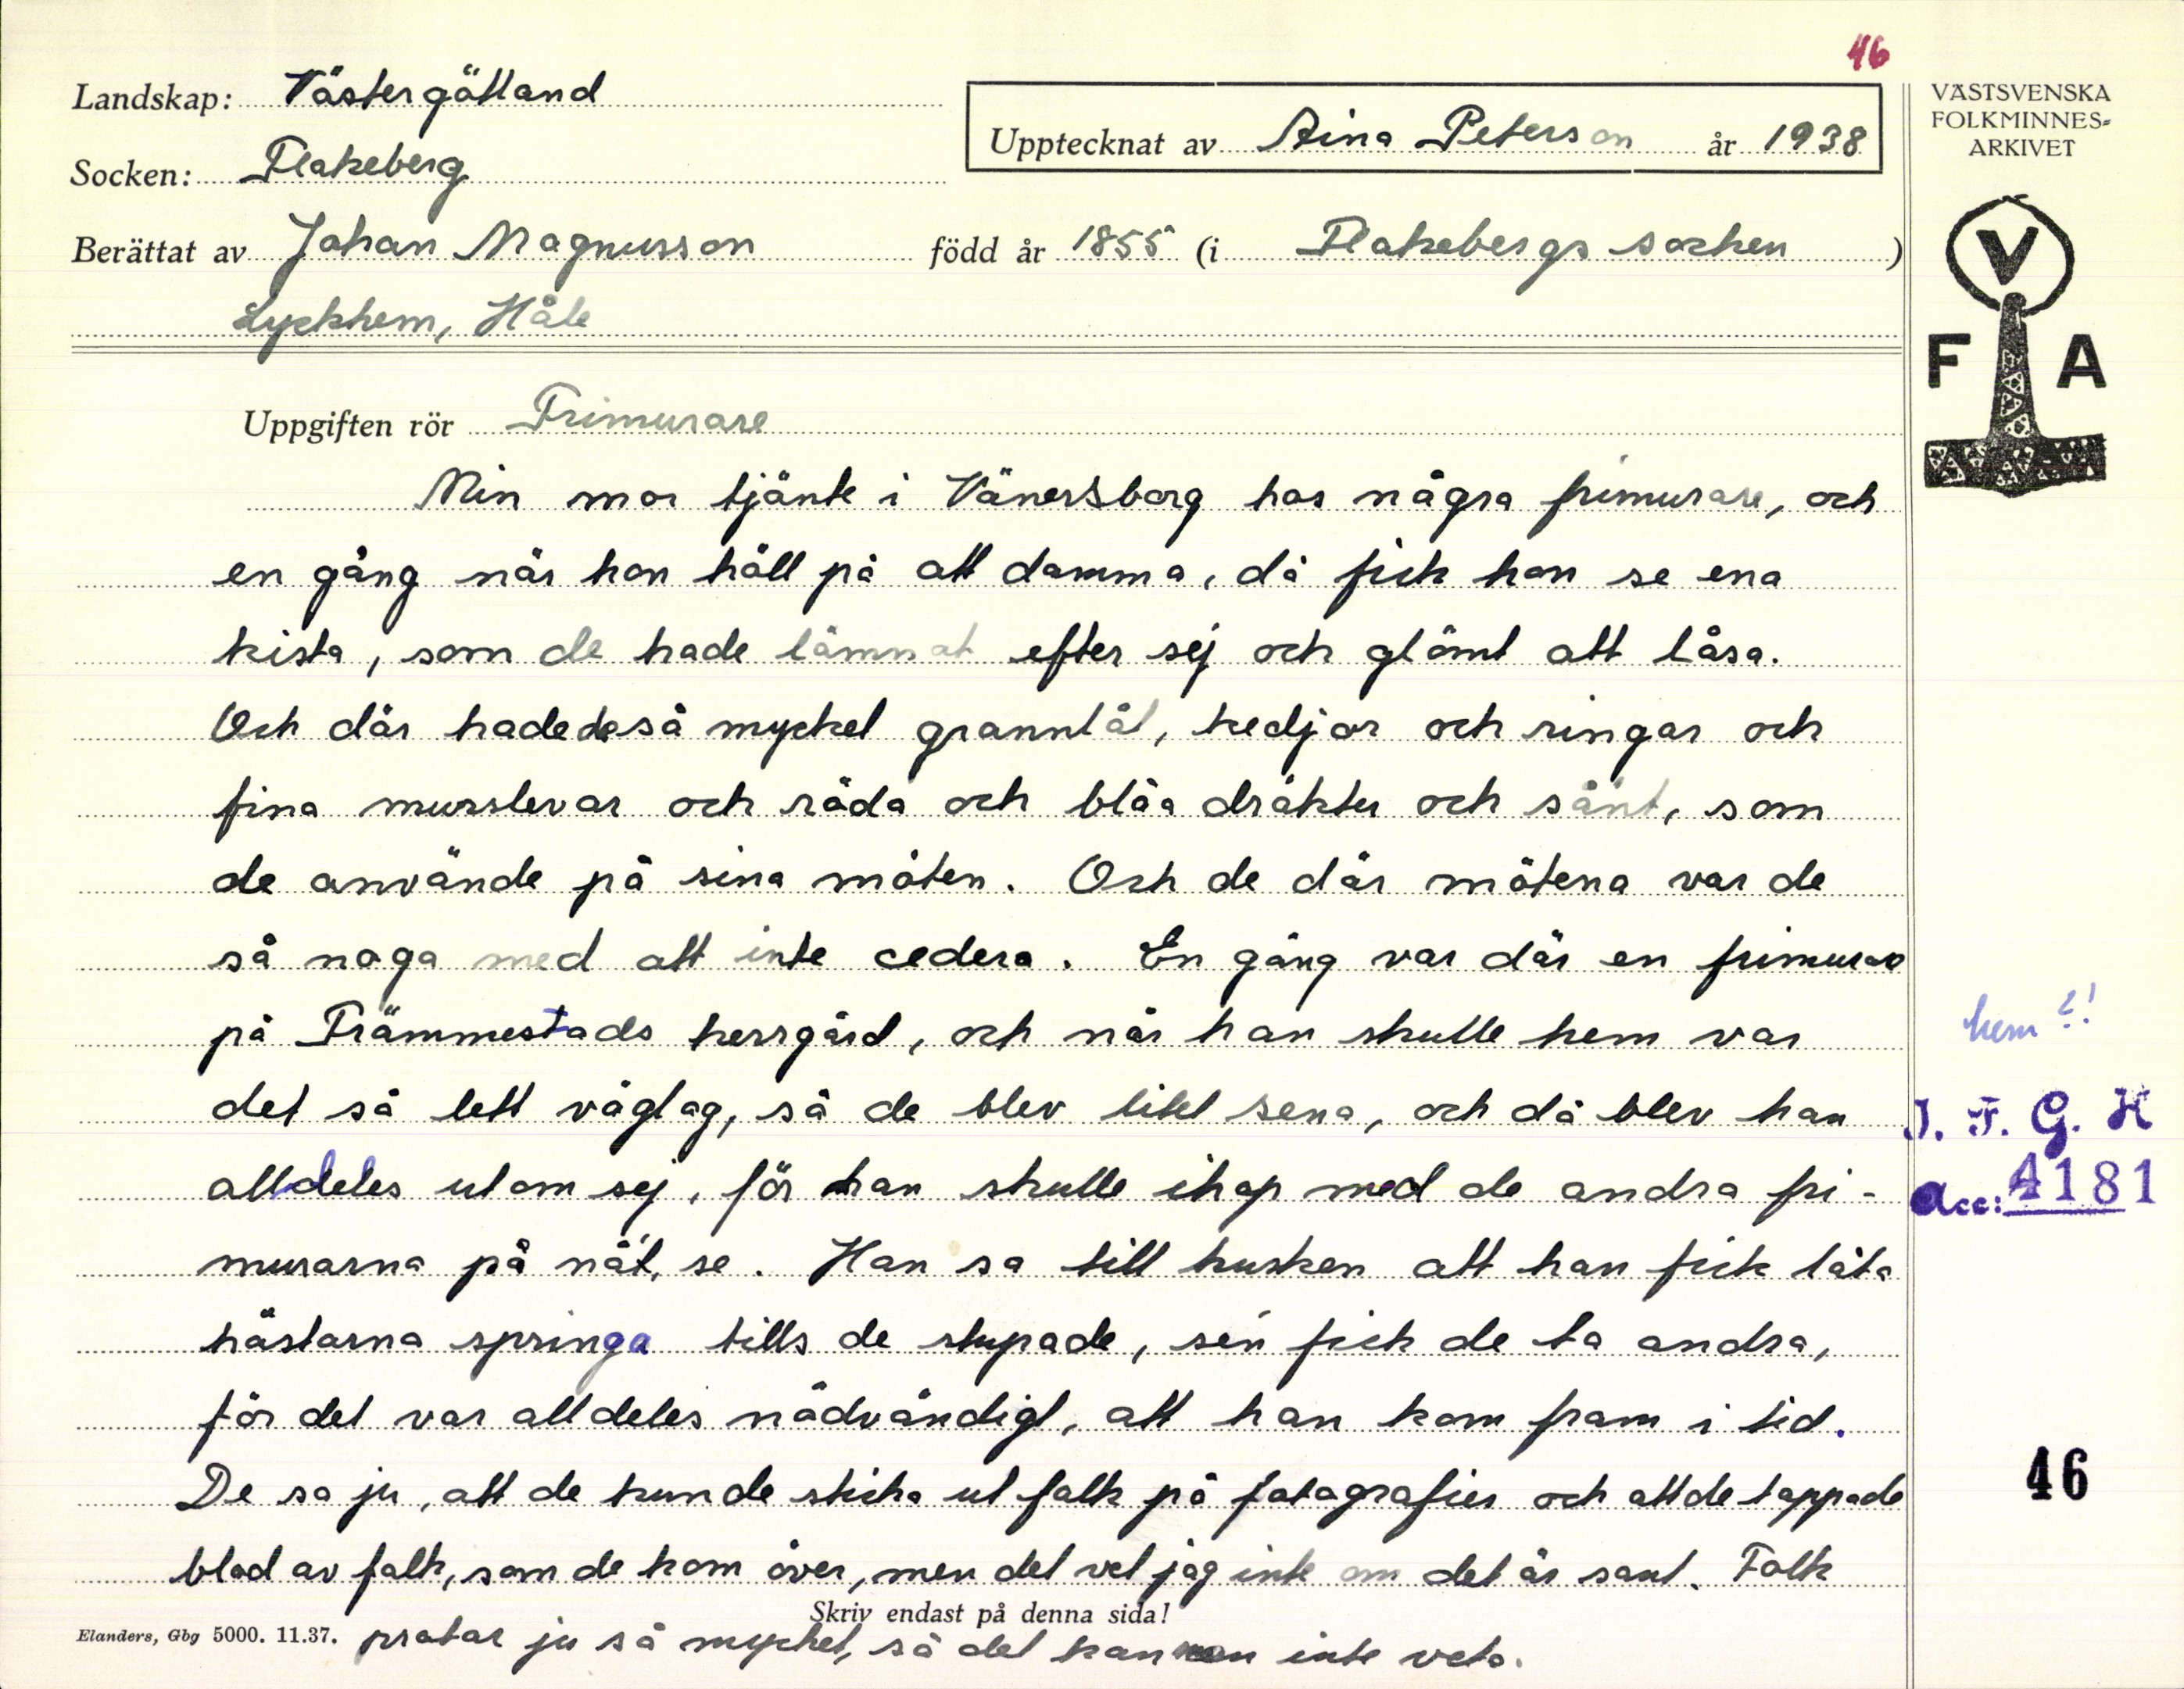 46
Landskap: Västergötland
Socken: Flakeberg
Upptecknat av Aina Peterson år 1938
Berättat av Johan Magnusson född år 1855 (i Flakebergs socken)
Lyckhem, Håle
VÄSTSVENSKA
FOLKMINNES-
ARKIVET
V
F A
Uppgiften rör Frimurare
Min mor tjänte i Vänersborg hos några frimurare, och
en gång när hon höll på att damma, då fick hon se ena
kista, som de hade lämnat efter sej och glömt att låsa.
Och där hade de så mycket grannlåt, kedjor och ringar och
fina murslevar och röda och blåa dräkter och sånt, som
de använde på sina möten. Och de där mötena var de
så noga med att inte cedera. En gång var där en frimurare
på Främmestads herrgård, och när han skulle hem var
hem ?!
det så lett väglag, så de blev litet sena, och då blev han
alldeles utom sej, för han skulle ihop med de andra fri-
murarna på nåt, se. Han sa till kusken att han fick låta
hästarna springa tills de stupade, sén fick de ta andra,
för det var alldeles nödvändigt, att han kom fram i tid.
De sa ju, att de kunde sticka ut folk på fotografier och att de tappade
blod av folk, som de kom över, men det vet jag inte om det är sant. Folk
pratar ju så mycket, så det kan en inte veta.
I. F. G. H
Acc: 4181
46
Skriv endast på denna sida!
Elanders, Gbg 5000. 11.37.